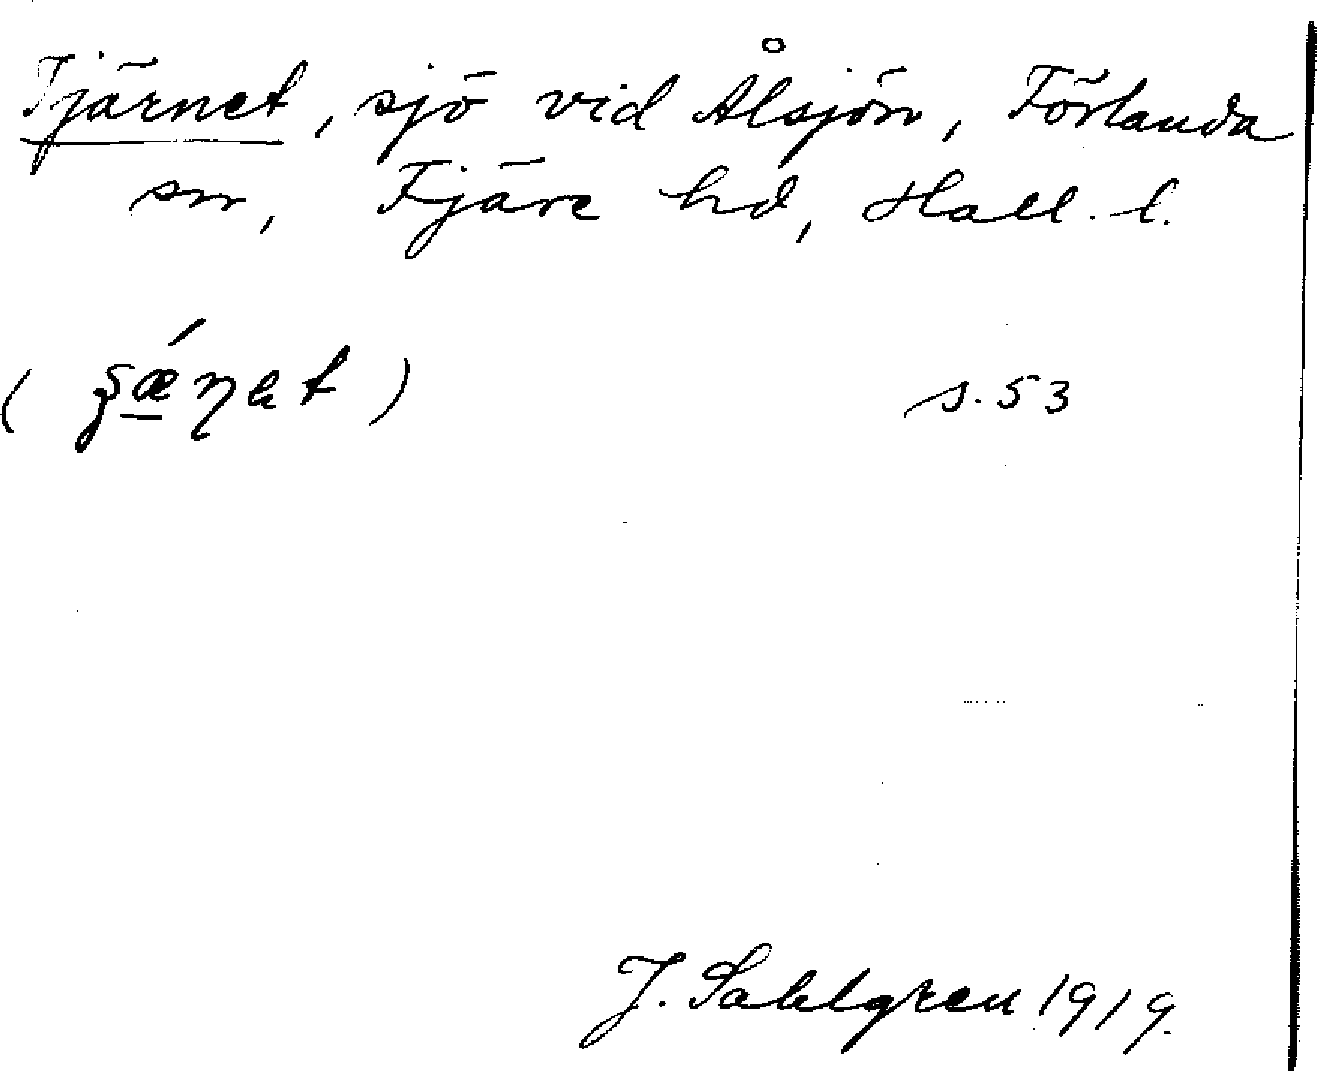 Tjärnet, sjö vid Ålsjön, Förlanda
sn, Fjäre hd, Hall. l.
s. 53
J. Sahlgren 1919.